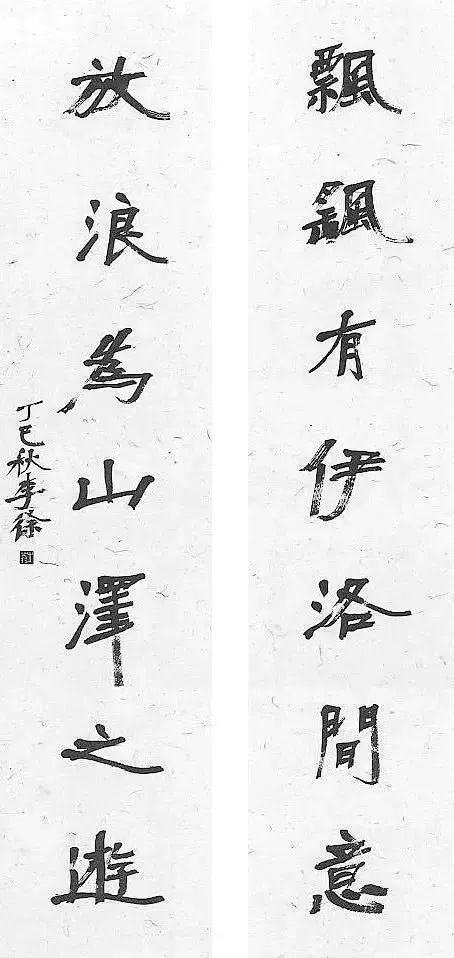 飄颻有伊洛間意
放浪為山澤之遊
丁巳秋李徐